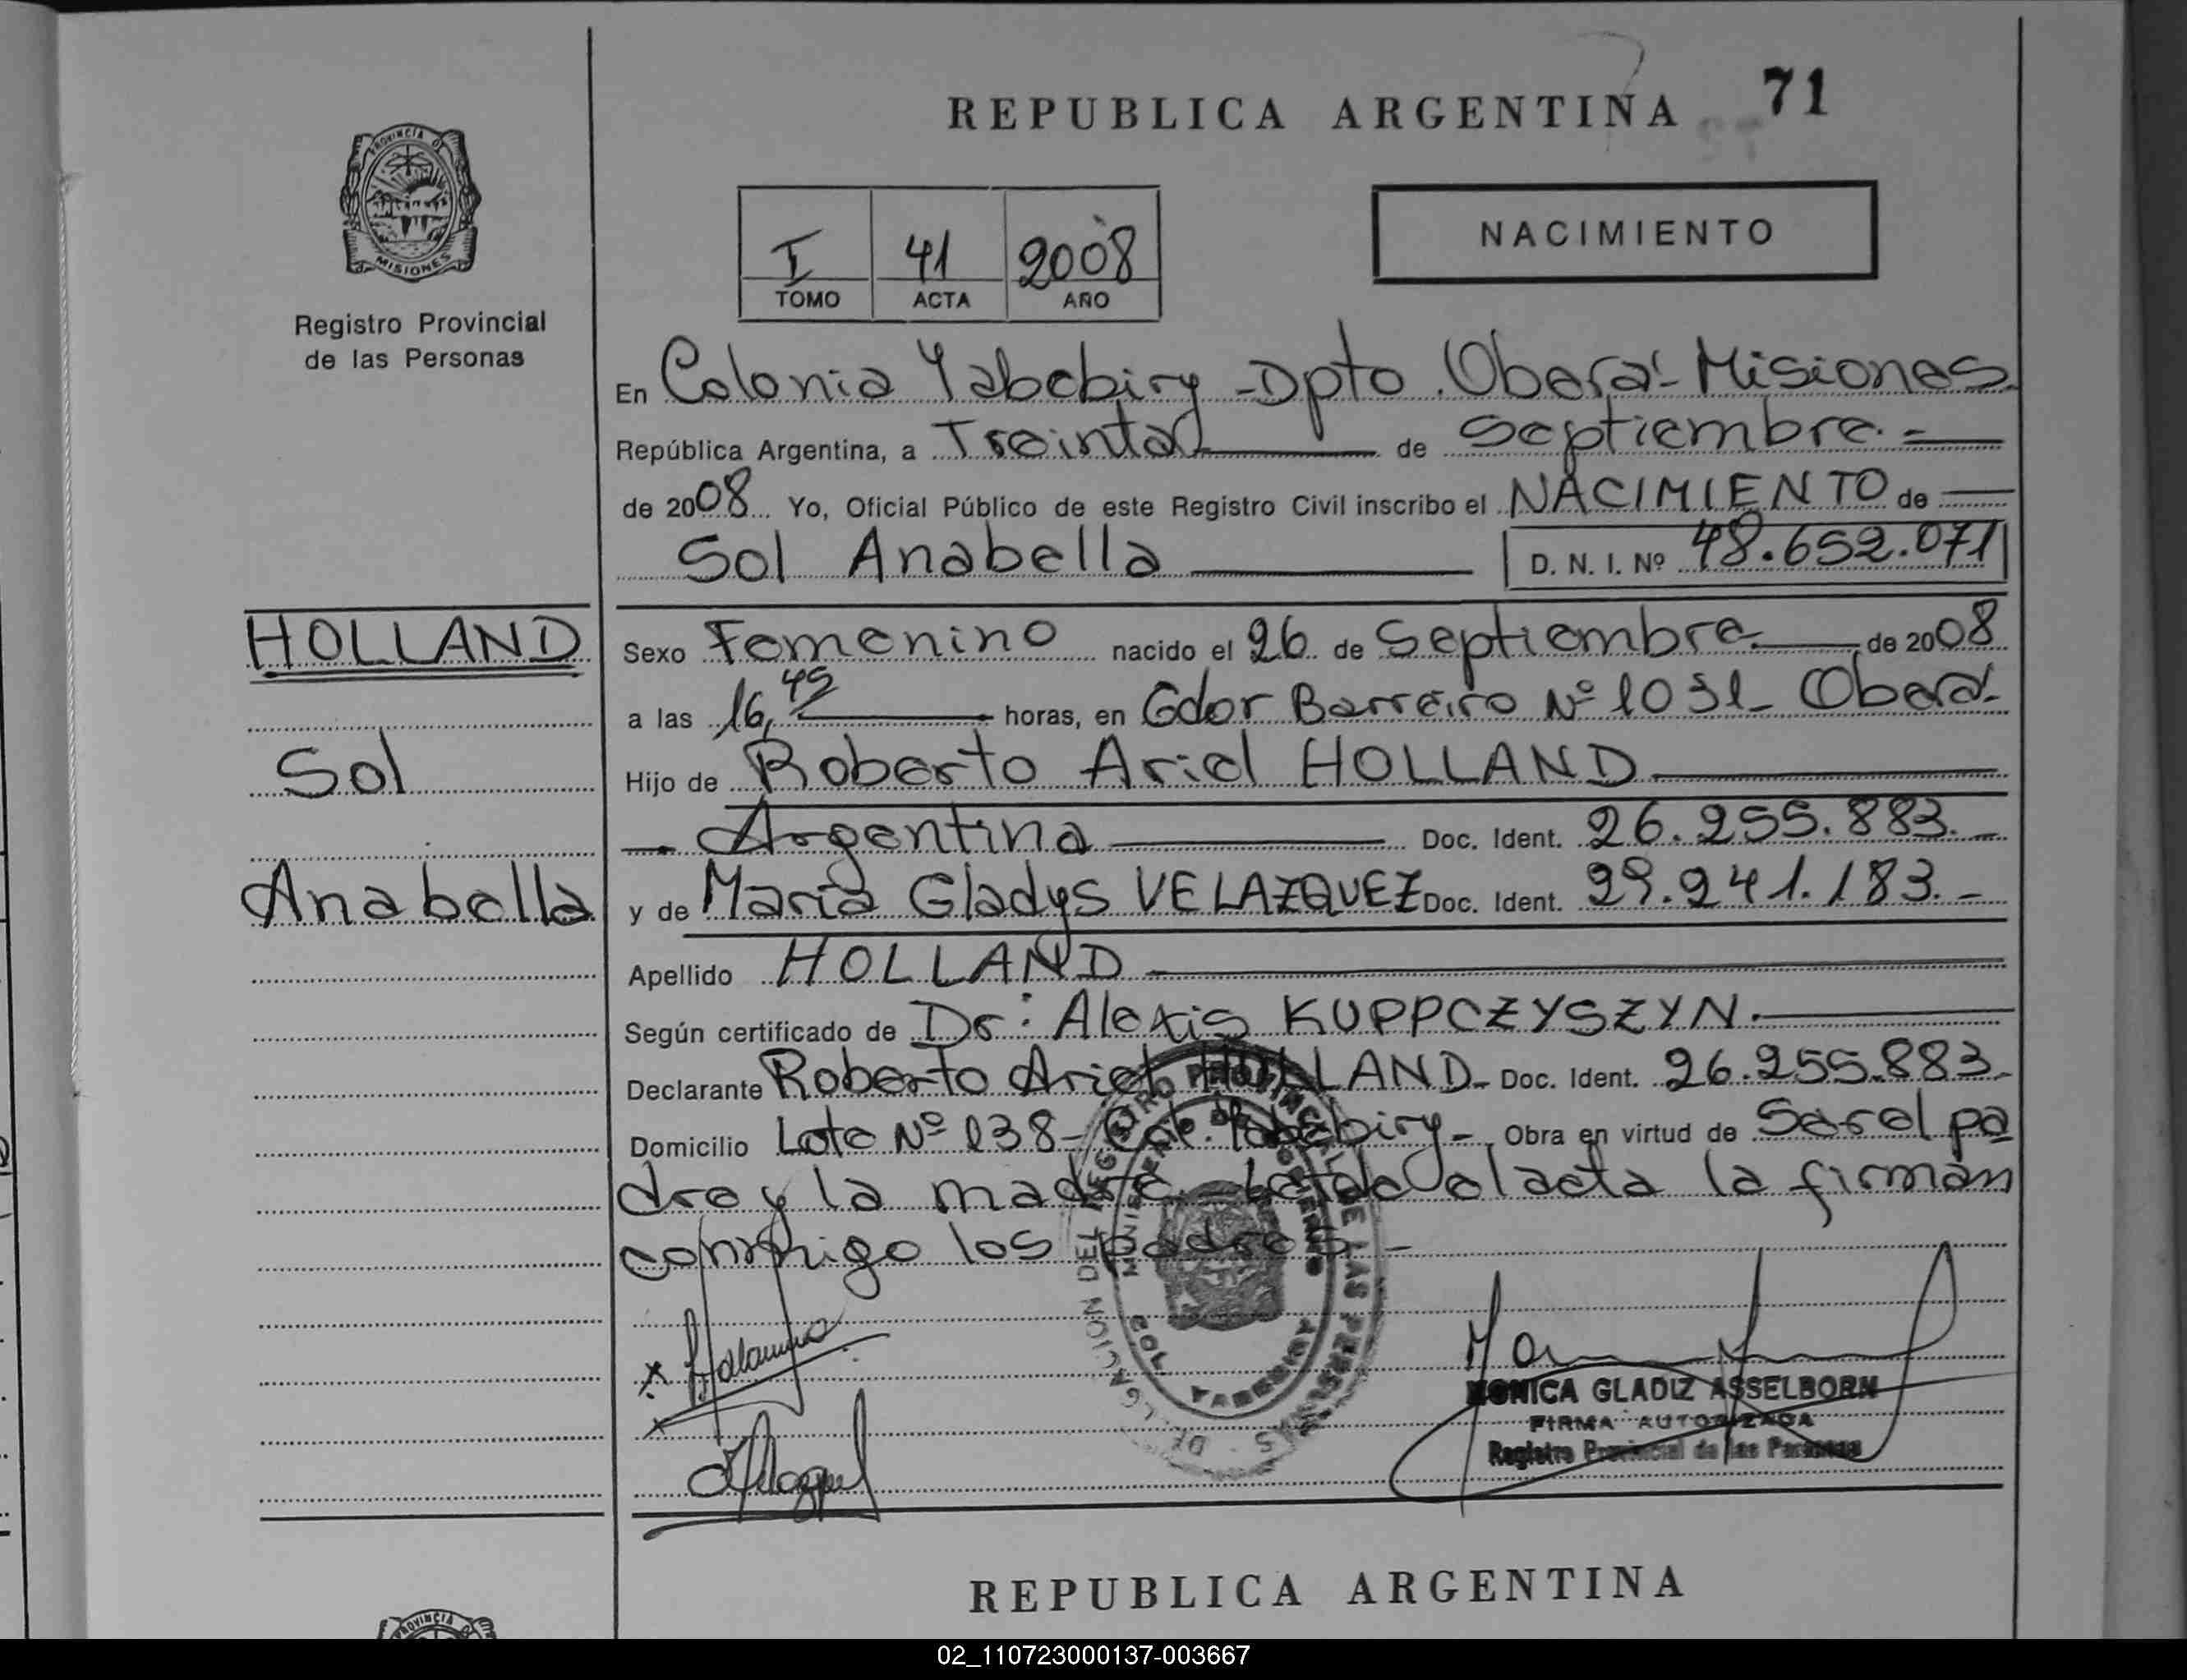 REPUBLICA ARGENTINA 71
PROVINCIA DE
MISIONES
Registro Provincial
de las Personas
NACIMIENTO
I 41 2008
TOMO ACTA AÑO
En Colonia Yabebiry - Dpto. Oberá - Misiones
República Argentina, a Treinta de Septiembre.-
de 2008 Yo, Oficial Público de este Registro Civil inscribo el NACIMIENTO de
Sol Anabella D. N. I. Nº 48.652.071
HOLLAND
Sexo Femenino nacido el 26 de Septiembre. de 2008
a las 16,45 horas, en Gdor Barreiro Nº 1031- Oberá-
Sol
Hijo de Roberto Ariel HOLLAND
Argentina Doc. Ident. 26.255.883.-
Anabella
y de María Gladys VELAZQUEZ Doc. Ident. 29.241.183.-
Apellido HOLLAND
Según certificado de Dr: Alexis KUPPCZYSZYN.
Declarante Roberto Ariel HOLLAND- Doc. Ident. 26.255.883.
Domicilio Lote Nº 138- Col. Yabebiry- Obra en virtud de Ser el pa
dre y la madre.- Leída el acta la firman
conmigo los padres.-
DELEGACION DEL REGISTRO PROVINCIAL DE LAS PERSONAS
COL YABEBIRY
MONICA GLADIZ ASSELBORN
FIRMA AUTORIZADA
Registro Provincial de las Personas
REPUBLICA ARGENTINA
PROVINCIA
02_110723000137-003667